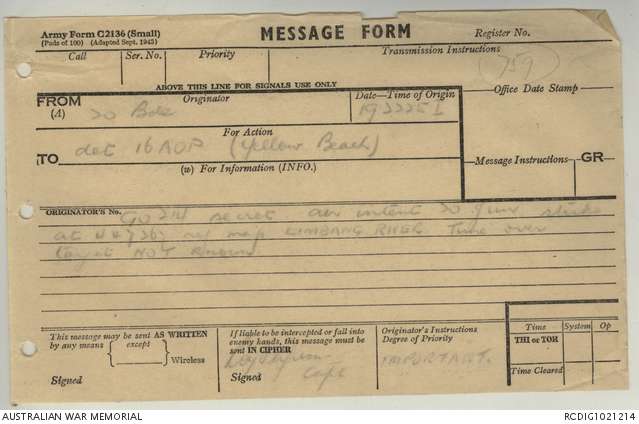 Army Form C2136 (Small)
(Pads of 100) (Adapted Sept. 1945)
MESSAGE FORM
Register No.
Call Ser. No. Priority Transmission Instructions
759
ABOVE THIS LINE FOR SIGNALS USE ONLY
FROM
(A)
Originator
20 Bde
Date—Time of Origin
192225 I
Office Date Stamp
For Action
TO det 16 AOP (Yellow Beach)
(W) For Information (INFO.)
Message Instructions GR
ORIGINATOR'S No. GO 214 secret air intent 20 June strike
at 447363 ref map LIMBANG RIVER Time over
target NOT known
This message may be sent AS WRITTEN
by any means except
Wireless
Signed
If liable to be intercepted or fall into
enemy hands, this message must be
sent IN CIPHER
Signed Capt
Originator's Instructions
Degree of Priority
IMPORTANT.
Time System Op
THI or TOR
Time Cleared
AUSTRALIAN WAR MEMORIAL
RCDIG1021214